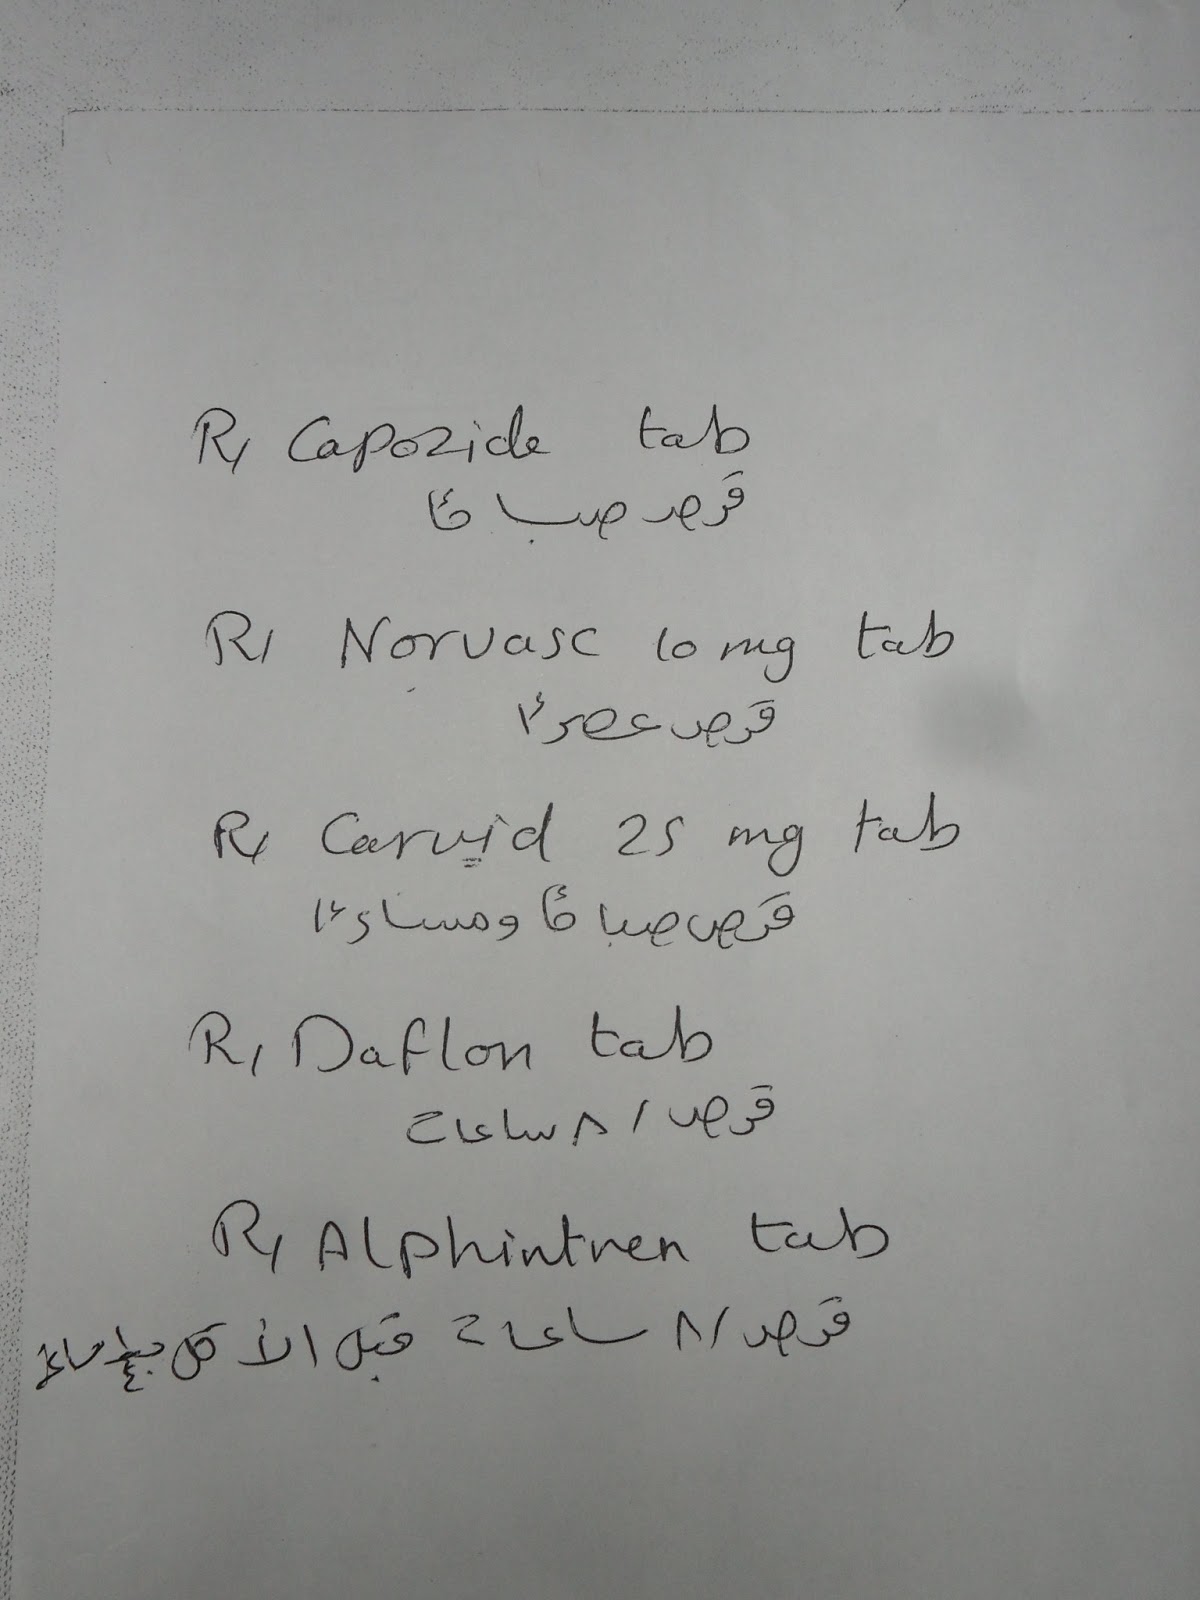 R/ Capozide tab
قرص صباحًا
R/ Norvasc 10 mg tab
قرص عصرًا
R/ Carvid 25 mg tab
قرص صباحًا ومساءًا
R/ Daflon tab
قرص / ٨ ساعات
R/ Alphintren tab
قرص / ٨ ساعات قبل الأكل ب ١/٤ ساعة